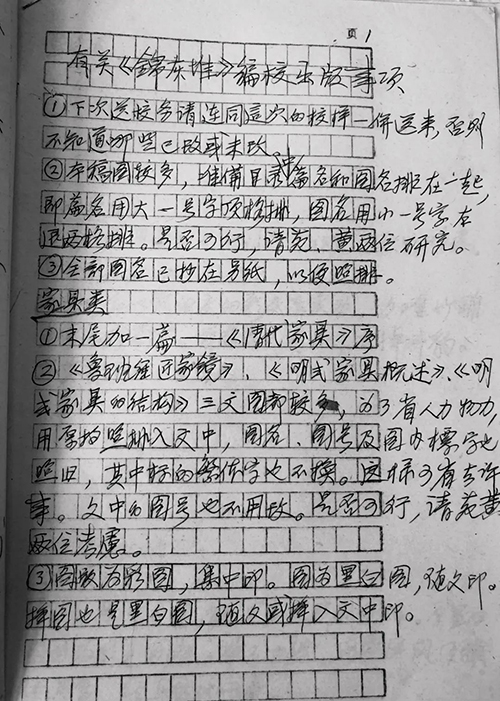 页1
有关《錦灰堆》编校出版事项
①下次送校务请连同这次的校样一併送来,否则
不知道哪些已改或未改。
②本稿图较多,准備目录中篇名和图名排在一起,
即篇名用大一号字顶格排,图名用小一号字在
退两格排。是否可行,请苑、黄两位研究。
③全部图名已抄在另纸,以便照排。
家具类
①末尾加一篇——《清代家具》序
②《鲁班经匠家镜》、《明式家具概述》、《明
式家具的结构》三文图都较多,为了省人力物力,
用原拍照排入文中,图名、图号及图内標字也
照旧,其中标的繁体字也不换。这样可省去许
事。文中的图号也不用改。是否可行,请苑黄
两位考慮。
③图版为彩图,集中印。图为黑白图,随文印。
插图也是黑白图,随文或挿入文中印。